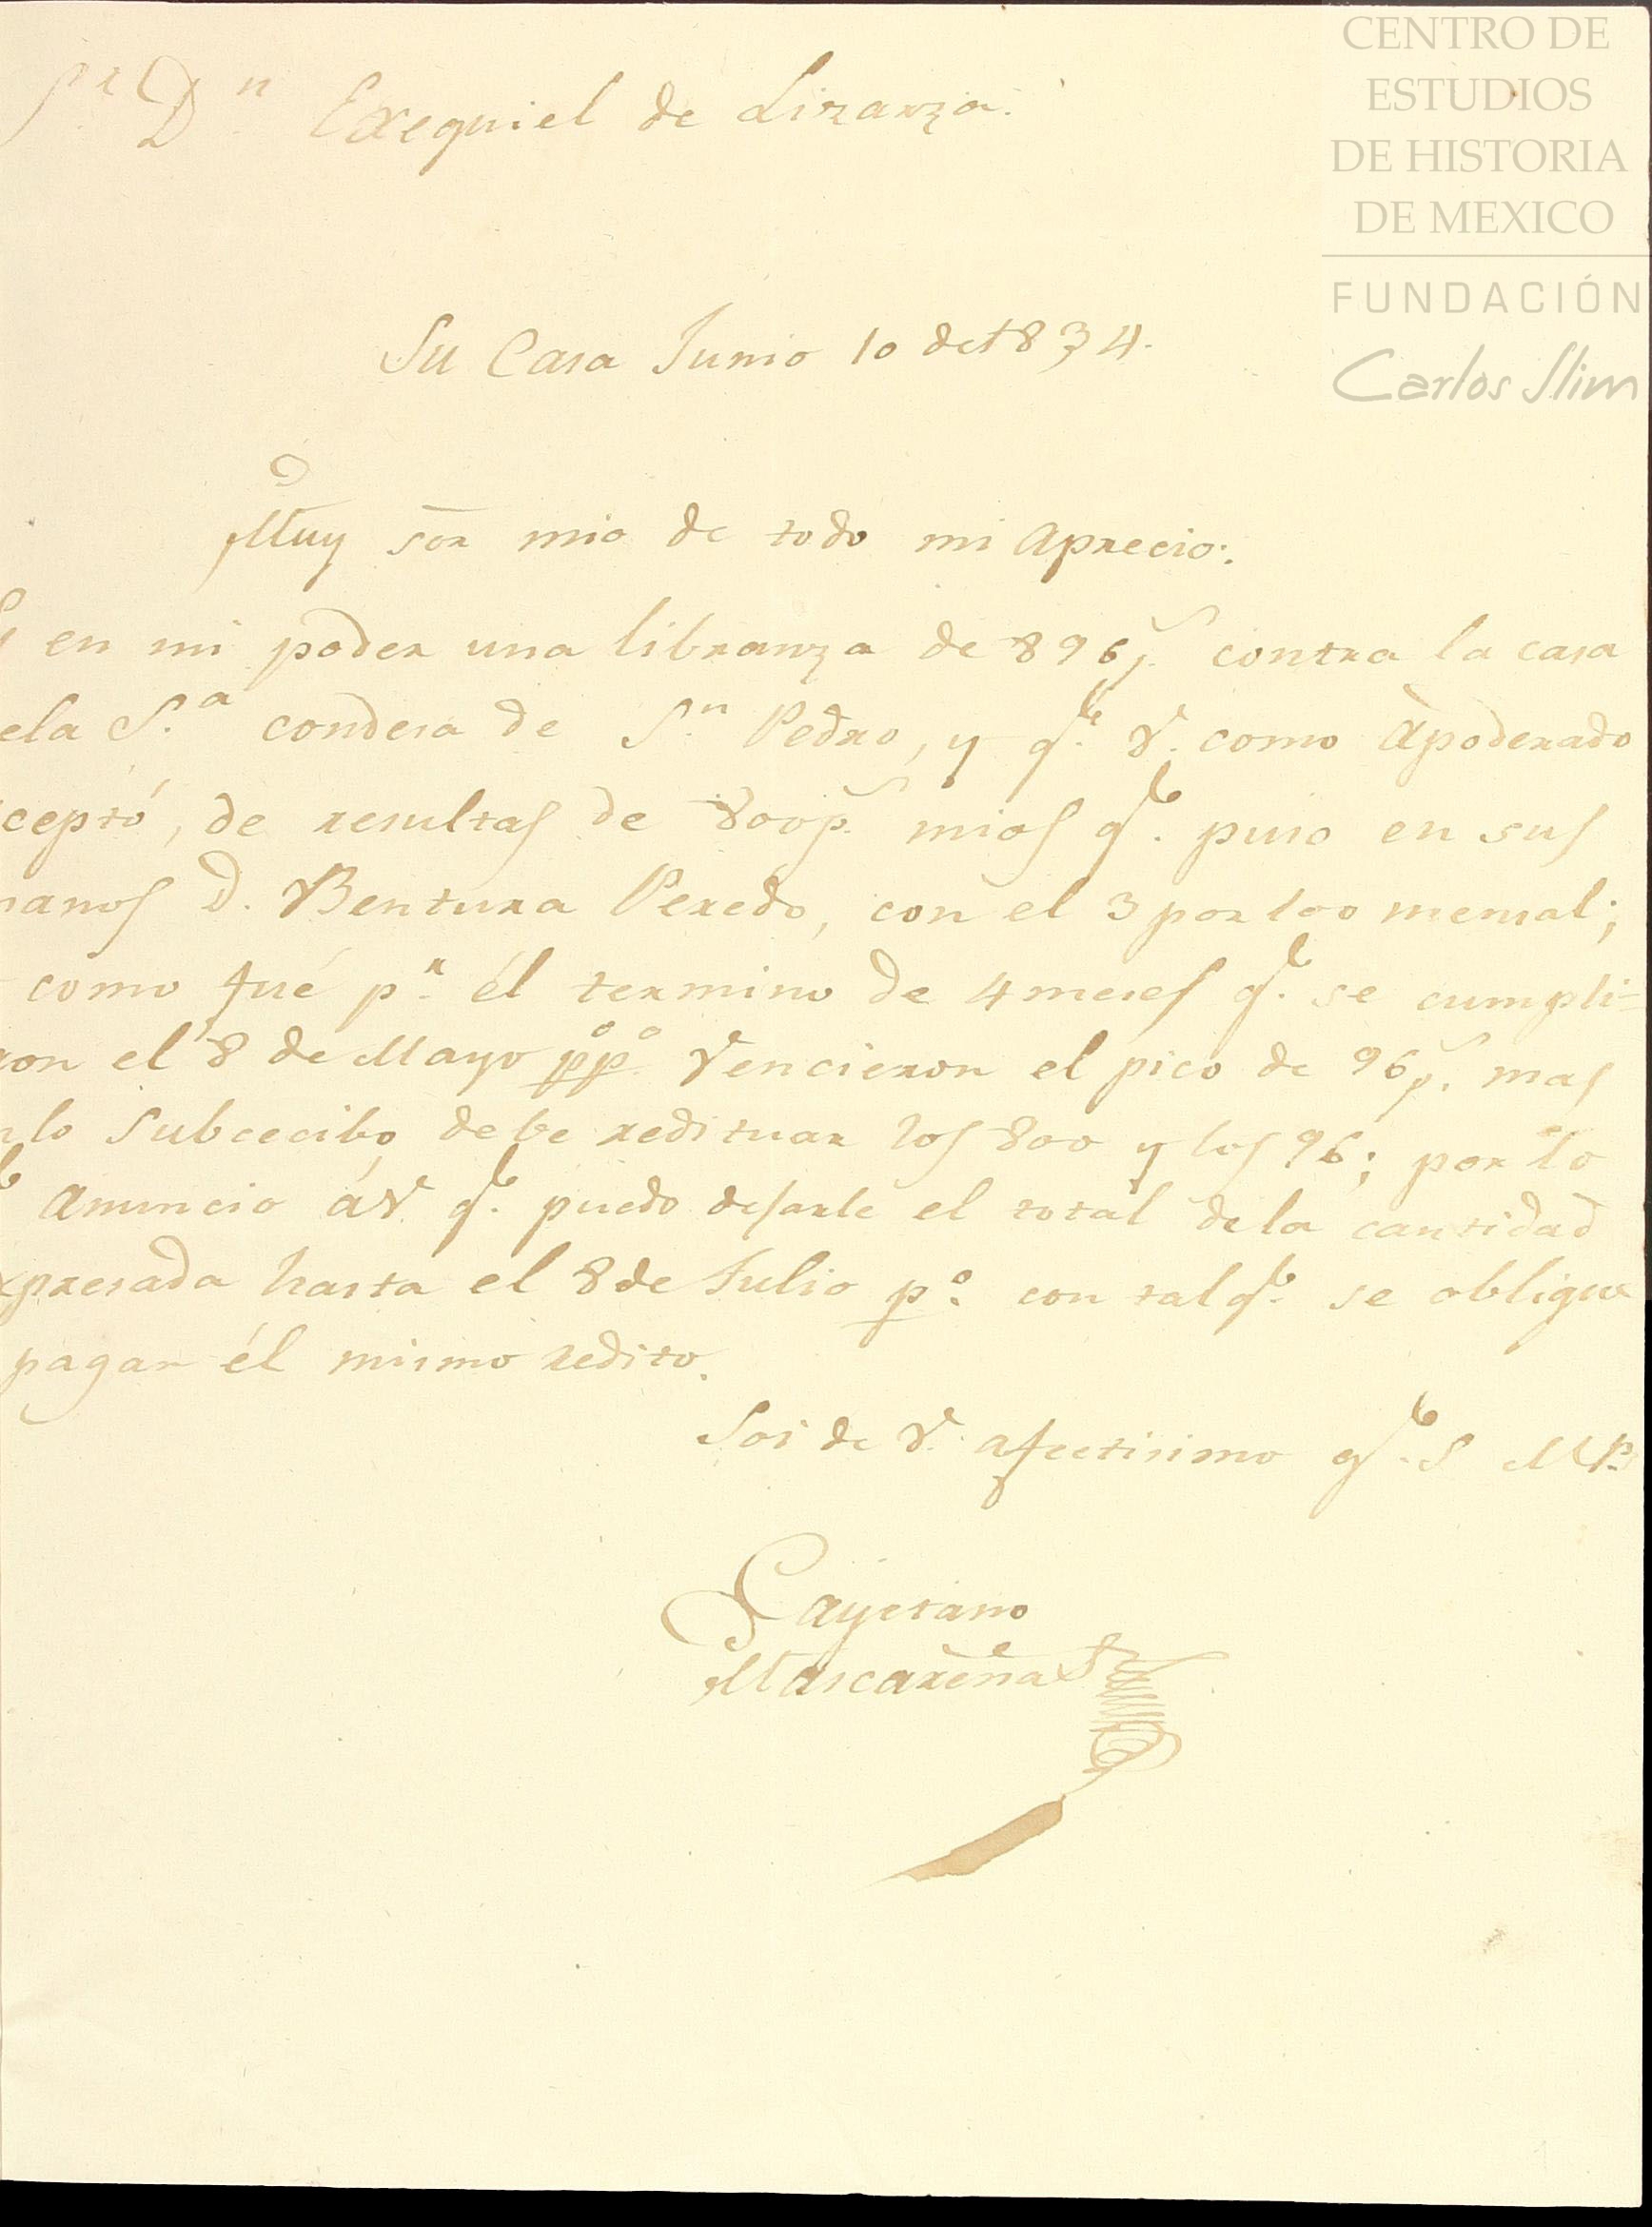 Sr Dn Exequiel de Lizarza.
CENTRO DE
ESTUDIOS
DE HISTORIA
DE MEXICO
FUNDACIÓN
Carlos Slim
Su Casa Junio 10 de 1834.
Muy sor mio de todo mi Aprecio:
en mi poder una libranza de 896 p.s contra la casa
ela S.a condesa de S.n Pedro, y q.e V. como Apoderado
ceptó, de resultas de 800 p.s mios q.e puso en sus
manos D. Bentura Peredo, con el 3 por 100 mensal;
como fué p.r él termino de 4 meses q.e se cumpli=
ron el 8 de Mayo pº pº Vencieron el pico de 96 p.s mas
n lo Subcecibo debe redituar los 800 y los 96; por lo
Anuncio á V. q.e puedo dejarle el total de la cantidad
xpresada hasta el 8 de Julio pº. con tal q.e se obligue
pagar él mismo redito.
Soi de V. afectisimo q.e S M B
Cayetano
Mascareñas